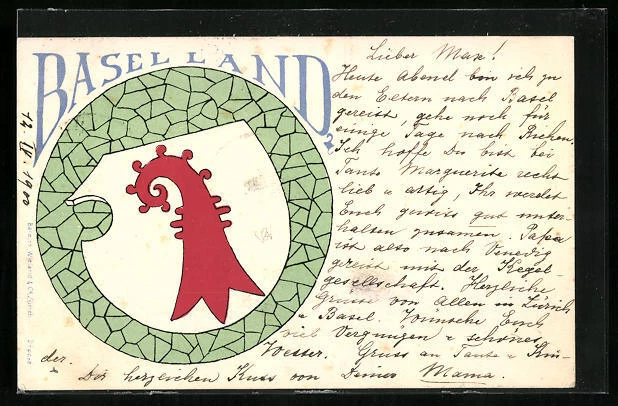 BASELLAND
Lieber Max!
Heute Abend bin ich zu
den Eltern nach Basel
gereist, gehe noch für
einige Tage nach Riehen.
Ich hoffe Du bist bei
Tante Marguerite recht
lieb u artig, Ihr werdet
Euch gewiss gut unter-
halten zusamen. Papa
ist also nach Venedig
gereist mit der Kegel-
gesellschaft. Herzliche
Grüsse von Allen in Zürich
u Basel. Wünsche Euch
viel Vergnügen u schönes
Wetter. Gruss an Tante u Kin-
der.
Dir herzlichen Kuss von Deiner Mama.
1900